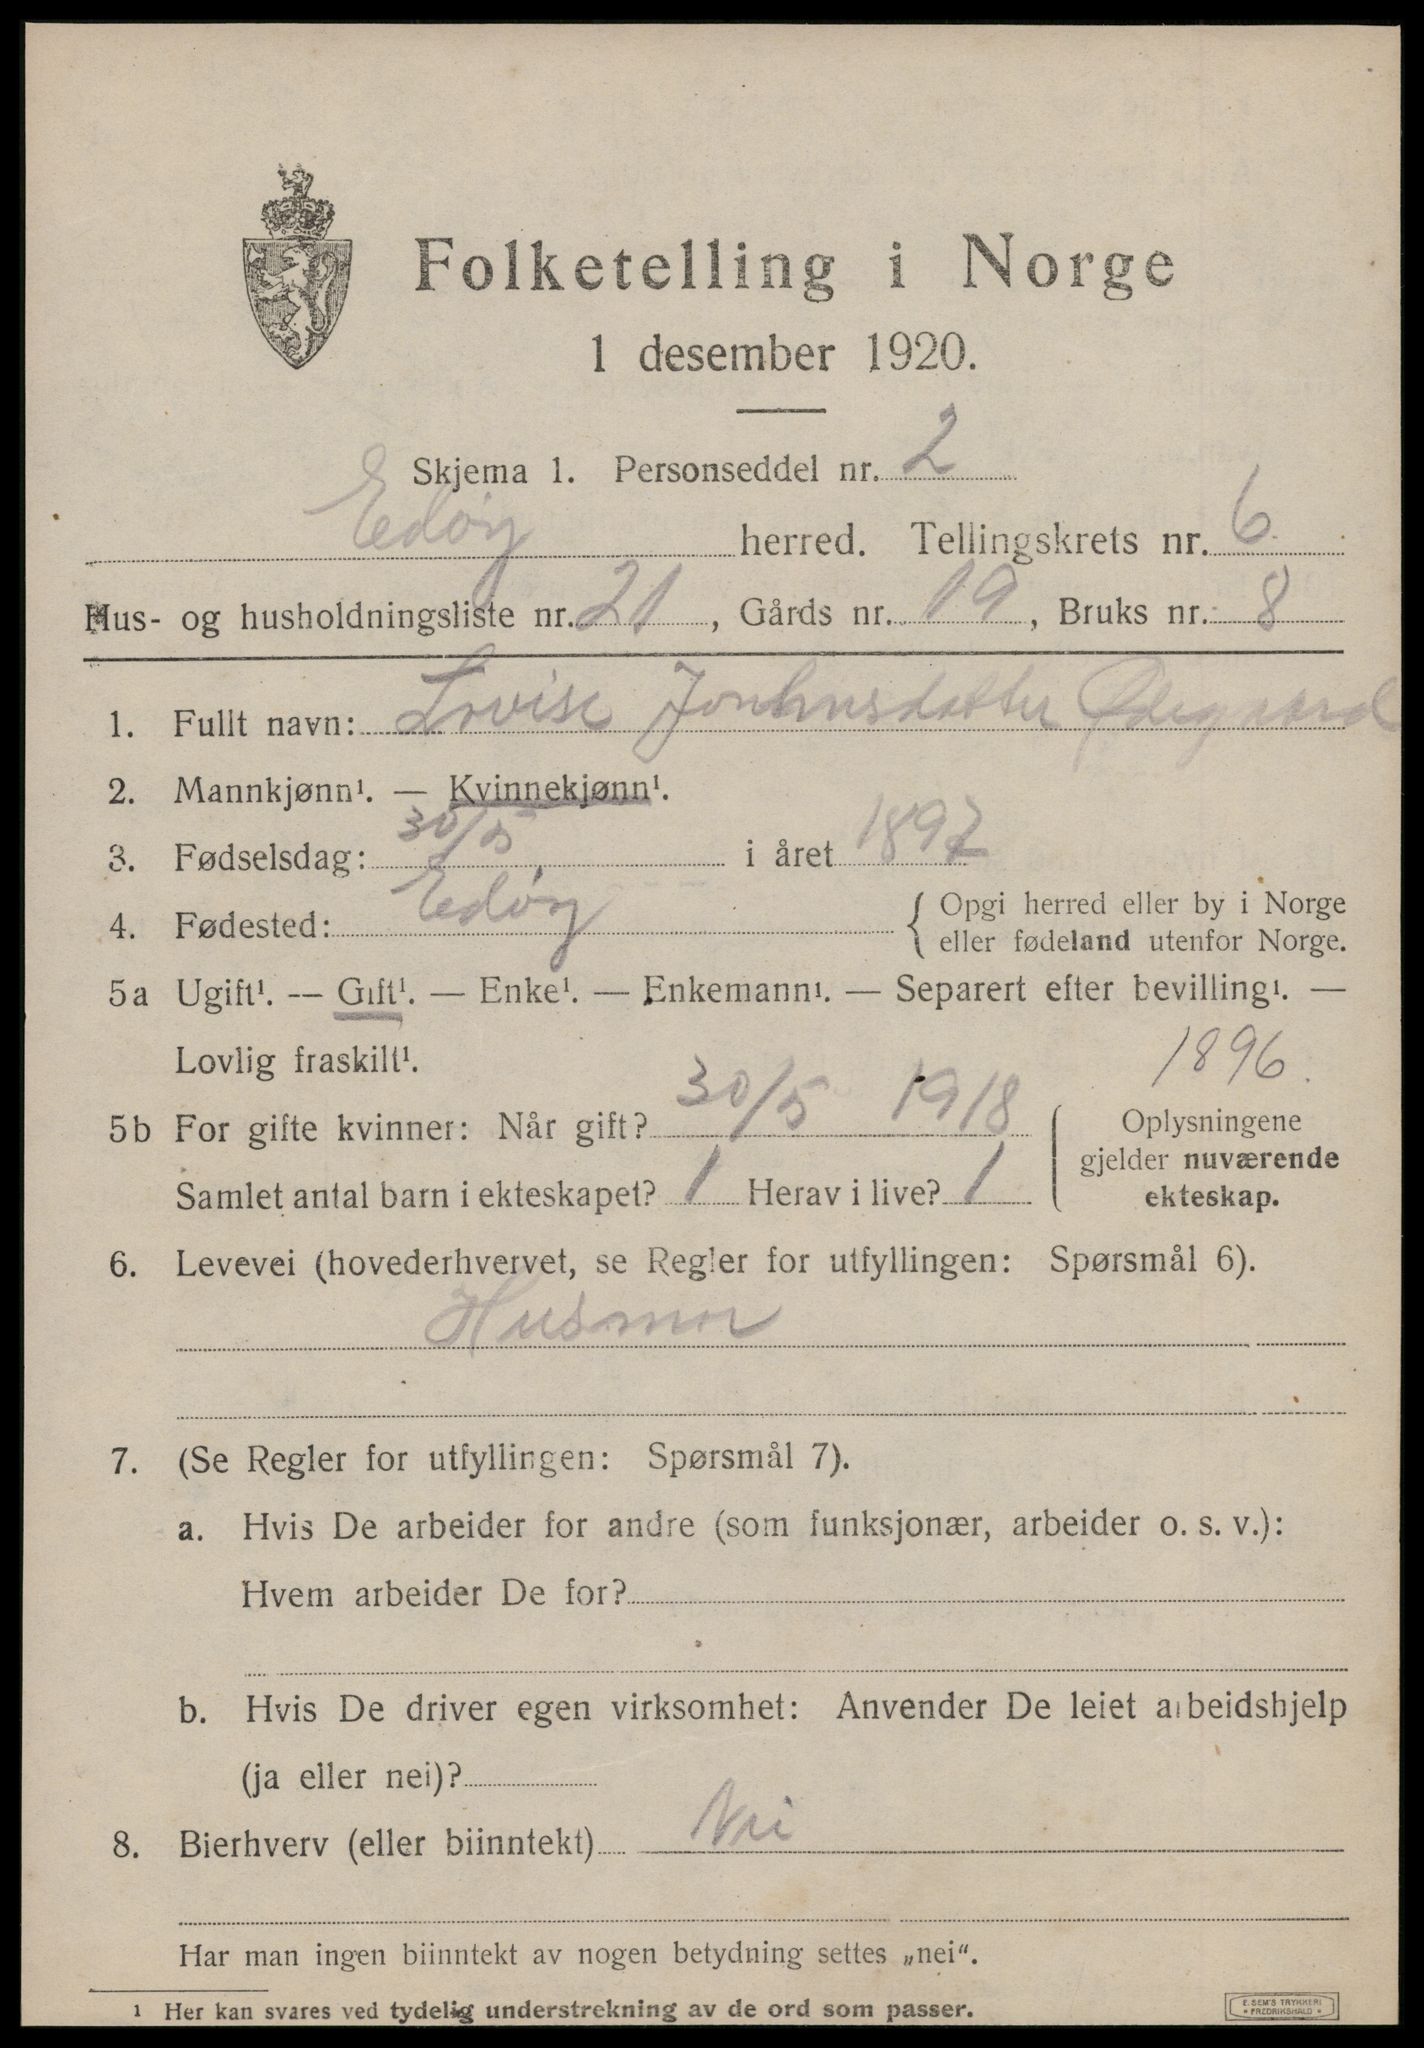 Folketelling i Norge
1 desember 1920.
Skjema 1. Personseddel nr. 2
Edøy herred. Tellingskrets nr. 6
Hus- og husholdningsliste nr. 21, Gårds nr. 19, Bruks nr. 8
1. Fullt navn: Lovise Ødegaard
2. Mannkjønn¹. — Kvinnekjønn¹.
3. Fødselsdag: 30/5 i året 1897
4. Fødested: Edøy { Opgi herred eller by i Norge
eller fødeland utenfor Norge.
5a Ugift¹. — Gift¹. — Enke¹. — Enkemann¹. — Separert efter bevilling¹. —
Lovlig fraskilt¹. 1896.
5b For gifte kvinner: Når gift? 30/5 1918
Samlet antal barn i ekteskapet? 1 Herav i live? 1
{ Oplysningene
gjelder nuværende
ekteskap.
6. Levevei (hovederhvervet, se Regler for utfyllingen: Spørsmål 6).
Husmor
7. (Se Regler for utfyllingen: Spørsmål 7).
a. Hvis De arbeider for andre (som funksjonær, arbeider o. s. v.):
Hvem arbeider De for?
b. Hvis De driver egen virksomhet: Anvender De leiet arbeidshjelp
(ja eller nei)?
8. Bierhverv (eller biinntekt) Nei
Har man ingen biinntekt av nogen betydning settes „nei“.
¹ Her kan svares ved tydelig understrekning av de ord som passer.
E. SEM'S TRYKKERI
• FREDRIKSHALD •